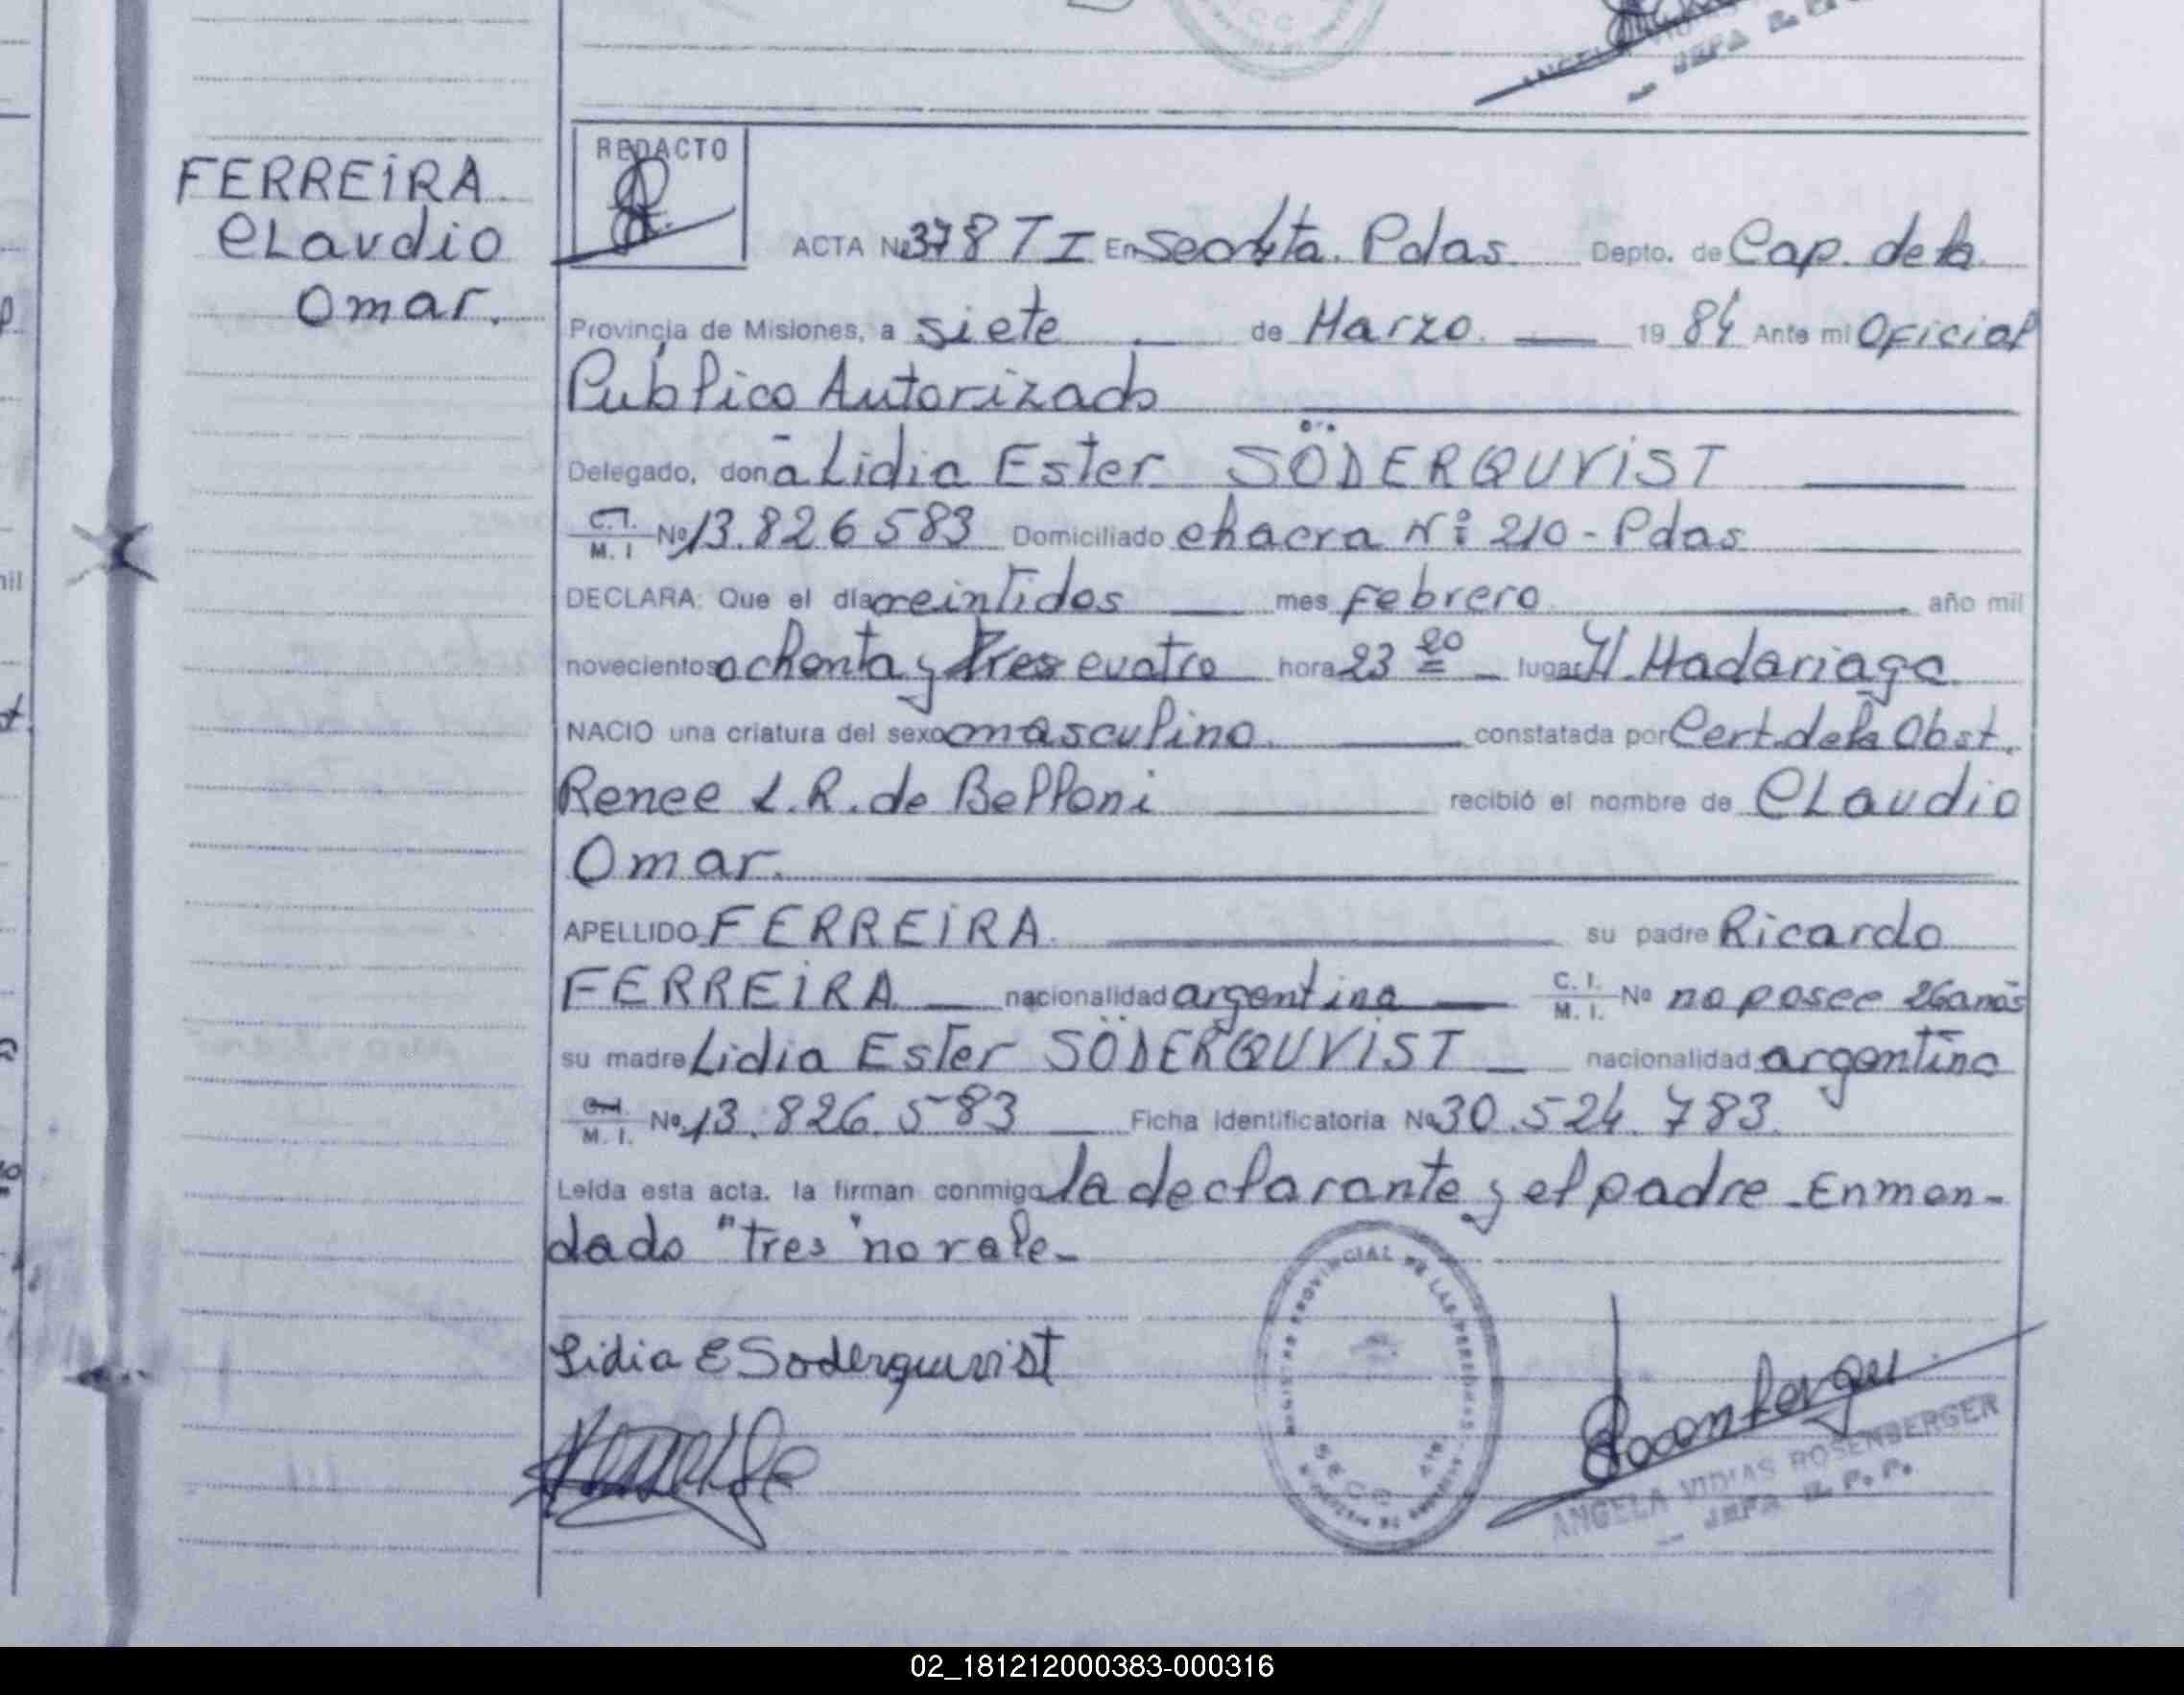 FERREIRA
CLaudio
Omar.
REDACTO
ACTA Nº 378 T I En Sec 4ta. Pdas. Depto. de Cap. de la
Provincia de Misiones, a siete de Marzo. 1984 Ante mi Oficial
Publico Autorizado
Delegado, doña Lidia Ester SÖDERQUVIST
C.I. M. I Nº 13.826583 Domiciliado chacra Nº 210 - Pdas
DECLARA: Que el día veintidos mes Febrero año mil
novecientos ochenta y tres cuatro hora 23 20 lugar H. Madariaga
NACIO una criatura del sexo masculino. constatada por Cert. de la Obst.
Renee L. R. de Belloni recibió el nombre de CLaudio
Omar.
APELLIDO FERREIRA. su padre Ricardo
FERREIRA nacionalidad argentina C. I. M. I. Nº no posee 26 años
su madre Lidia Ester SÖDERQUVIST nacionalidad argentina
M. I. Nº 13.826.583 Ficha Identificatoria Nº 30.524.783.
Leída esta acta. la firman conmigo la declarante y el padre - Enmen-
dado "tres" no vale-
Lidia E Soderquvist
ANGELA VIDIAS ROSENBERGER
JEFA R. P. P.
02_181212000383-000316